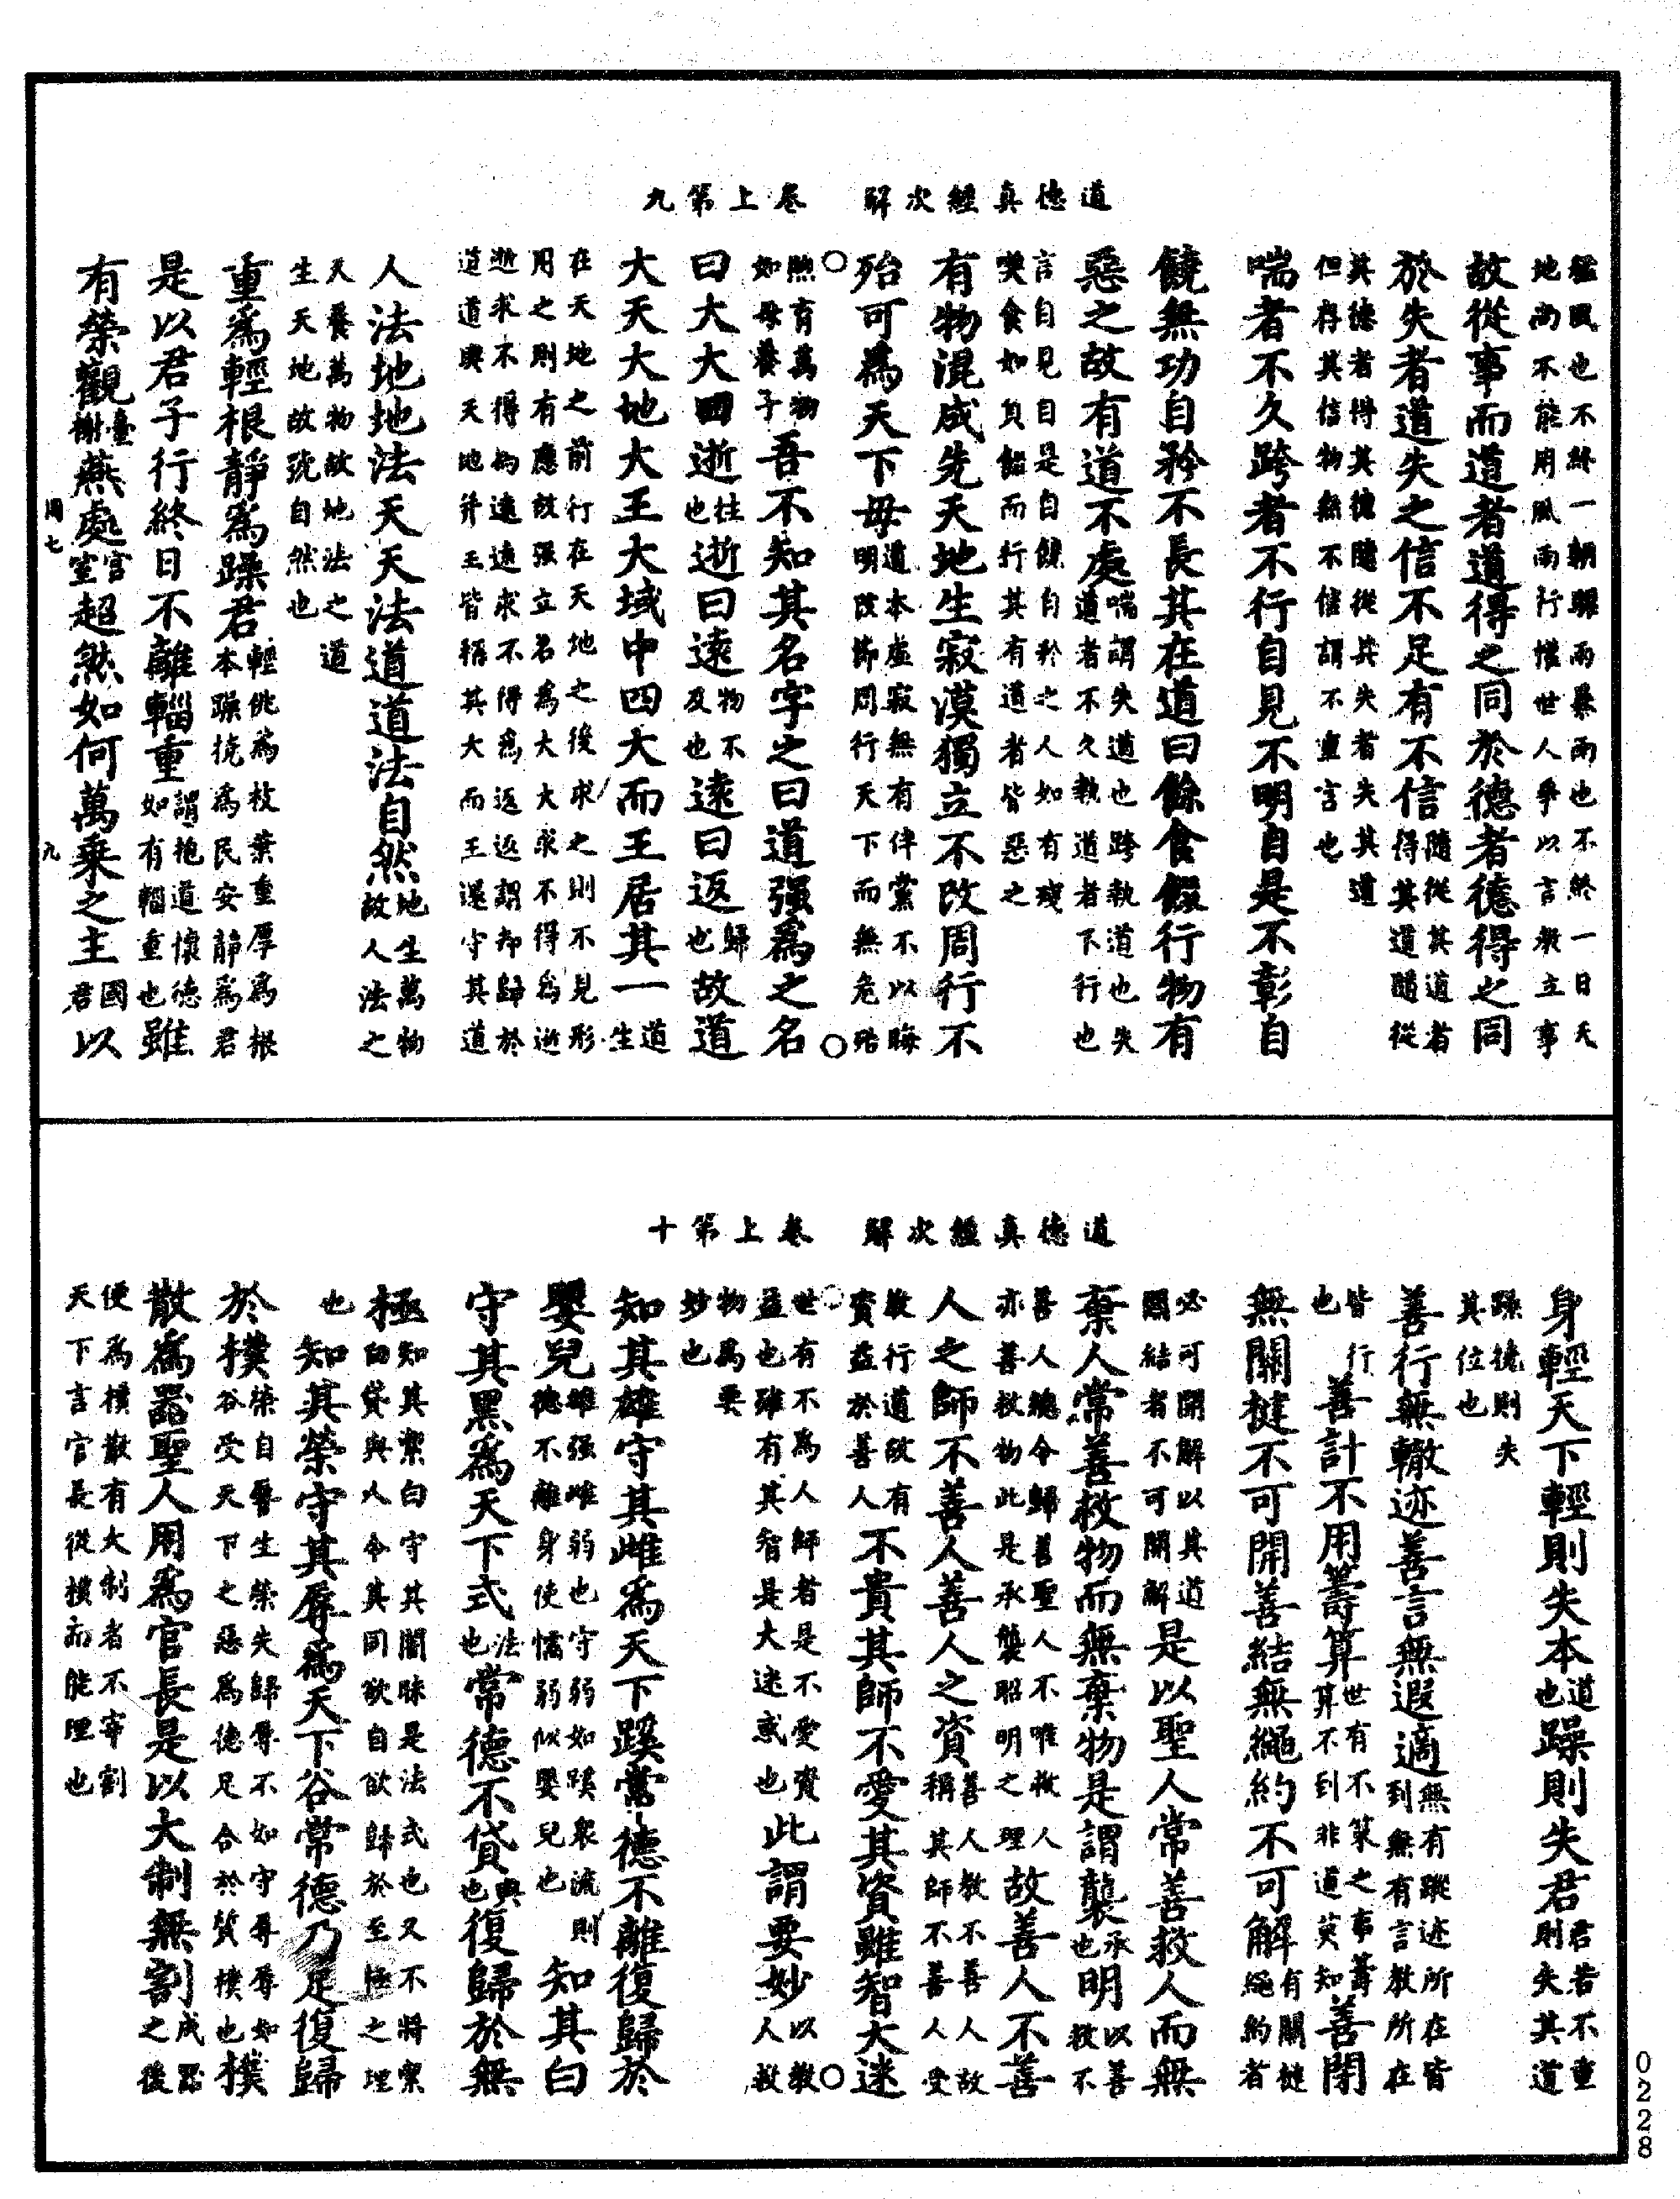 道德真經次解　卷上第九
猛風也不終一朝驟雨暴雨也不終一日天
地尚不能用風雨行惟世人爭以言教立事
故從事而道者道得之同於德者德得之同
於失者道失之信不足有不信隨從其道者得其道隨從
其德者得其德隨從其失者失其道
但存其信物無不信謂不重言也
喘者不久跨者不行自見不明自是不彰自
饒無功自矜不長其在道曰餘食餟行物有
惡之故有道不處喘謂失道也跨執道也失道者不久執道者下行也
言自見自是自饒自矜之人如有殘
㗖食如負餟而行其有道者皆惡之
有物混成先天地生寂漠獨立不改周行不
殆可為天下母道本虛寂無有伴黨不以晦明改節周行天下而無危殆
○煦育萬物如母養子吾不知其名字之曰道强為之名○
曰大大曰逝往也逝曰遠物不及也遠曰返歸也故道
大天大地大王大域中四大而王居其一道生
在天地之前行在天地之後求之則不見形
用之則有應故强立名為大大求不得為逝
逝求不得為遠遠求不得為返返謂却歸於
道道與天地并王皆稱其大而王還守其道
人法地地法天天法道道法自然地生萬物故人法之
天養萬物故地法之道
生天地故號自然也
重為輕根靜為躁君輕佻為枝葉重厚為根本躁撓為民安靜為君
是以君子行終日不離輜重謂抱道懷德如有輜重也雖
有榮觀臺榭燕處官室超然如何萬乘之主國君以
周七　九
道德真經次解　卷上第十
身輕天下輕則失本道也躁則失君君若不重則失其道
躁撓則失
其位也
善行無轍迹善言無遐適無有蹤迹所在皆到無有言教所在
皆行
也善計不用籌算世有不策之事籌算不到非道莫知善閉
無關揵不可開善結無繩約不可解有關揵繩約者
必可開解以其道
關結者不可開解是以聖人常善救人而無
棄人常善救物而無棄物是謂襲承也明以善救不
善人總令歸善聖人不唯救人
亦善救物此是承襲昭明之理故善人不善
人之師不善人善人之資善人教不善人故稱其師不善人受
教行道故有
資益於善人不貴其師不愛其資雖智大迷
○世有不為人師者是不愛資
益也雖有其智是大迷惑也此謂要妙以教人救○
物為要
妙也
知其雄守其雌為天下蹊常德不離復歸於
嬰兒雄强雌弱也守弱如蹊衆流則德不離身使懦弱似嬰兒也知其白
守其黑為天下式法也常德不貸與也復歸於無
極知其潔白守其闇昧是法式也又不將潔白貸與人令其同欲自欲歸於至極之理
也知其榮守其辱為天下谷常德乃足復歸
於樸榮自譽生榮失歸辱不如守辱辱如谷受天下之惡為德足合於質樸也樸
散為器聖人用為官長是以大制無割成器之後
便為樸散有大制者不宰割
天下言官長從樸而能理也
0228